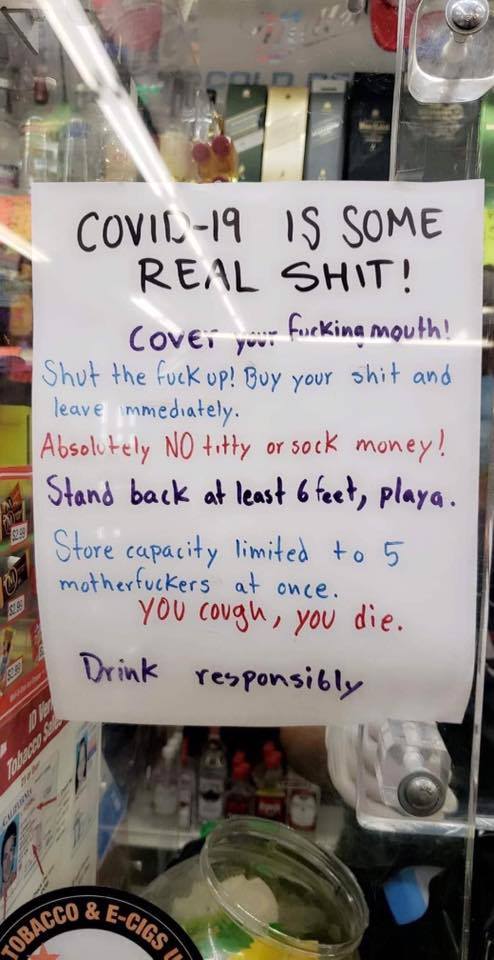 COLD
COVID-19 IS SOME
REAL SHIT!
Cover your fucking mouth!
Shut the fuck up! Buy your shit and
leave immediately.
Absolutely NO titty or sock money!
Stand back at least 6 feet, playa.
Store capacity limited to 5
motherfuckers at once.
YOU cough, you die.
Drink responsibly
$2.99
$2.99
ID
Tobacco
CALIFORNIA
TOBACCO & E-CIGS